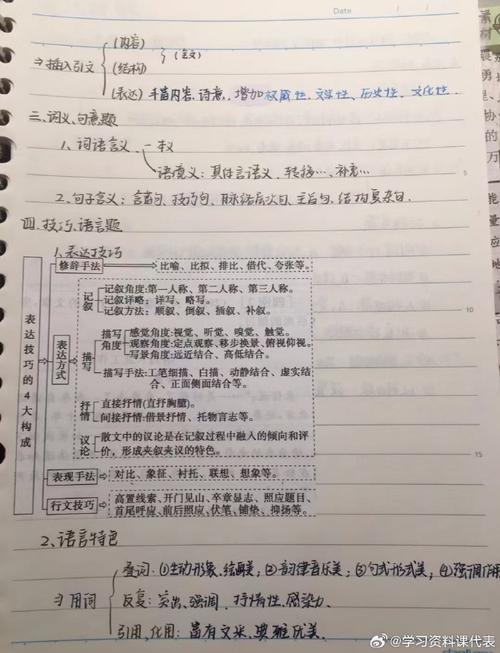 Date
(内容)
→插入引文 (结构)
(表达) 丰富内容、诗意,增加权威性、文学性、历史性、文化性。
三、词义、句意题
1、词语含义
语境义:具体含语义、转换…、补充…
2、句子含义:
四、技巧、语言题
1、表达技巧
表达技巧的4大构成
修辞手法 比喻、比拟、排比、借代、夸张等。
表达方式
记叙
记叙角度:第一人称、第二人称、第三人称。
记叙详略:详写、略写。
记叙方法:顺叙、倒叙、插叙、补叙。
描写
描写角度
感觉角度:视觉、听觉、嗅觉、触觉。
观察角度:定点观察、移步换景、俯视仰视。
写景角度:远近结合、高低结合。
描写手法:工笔细描、白描、动静结合、虚实结合、正面侧面结合等。
抒情
直接抒情(直抒胸臆)。
间接抒情:借景抒情、托物言志等。
议论
散文中的议论是在记叙过程中融入的倾向和评
价,形成夹叙夹议的特色。
表现手法 对比、象征、衬托、联想、想象等。
行文技巧 高置线索、开门见山、卒章显志、照应题目、
首尾呼应、前后照应、伏笔、铺垫、抑扬等。
2、语言特色
叠词:①生动形象、绘画美;②韵律音乐美;③句式形式美;④强调作用
用词 反复:突出、强调、抒情性、感染力。
引用、化用:富有文采、典雅优美。
10
15
@学习资料课代表